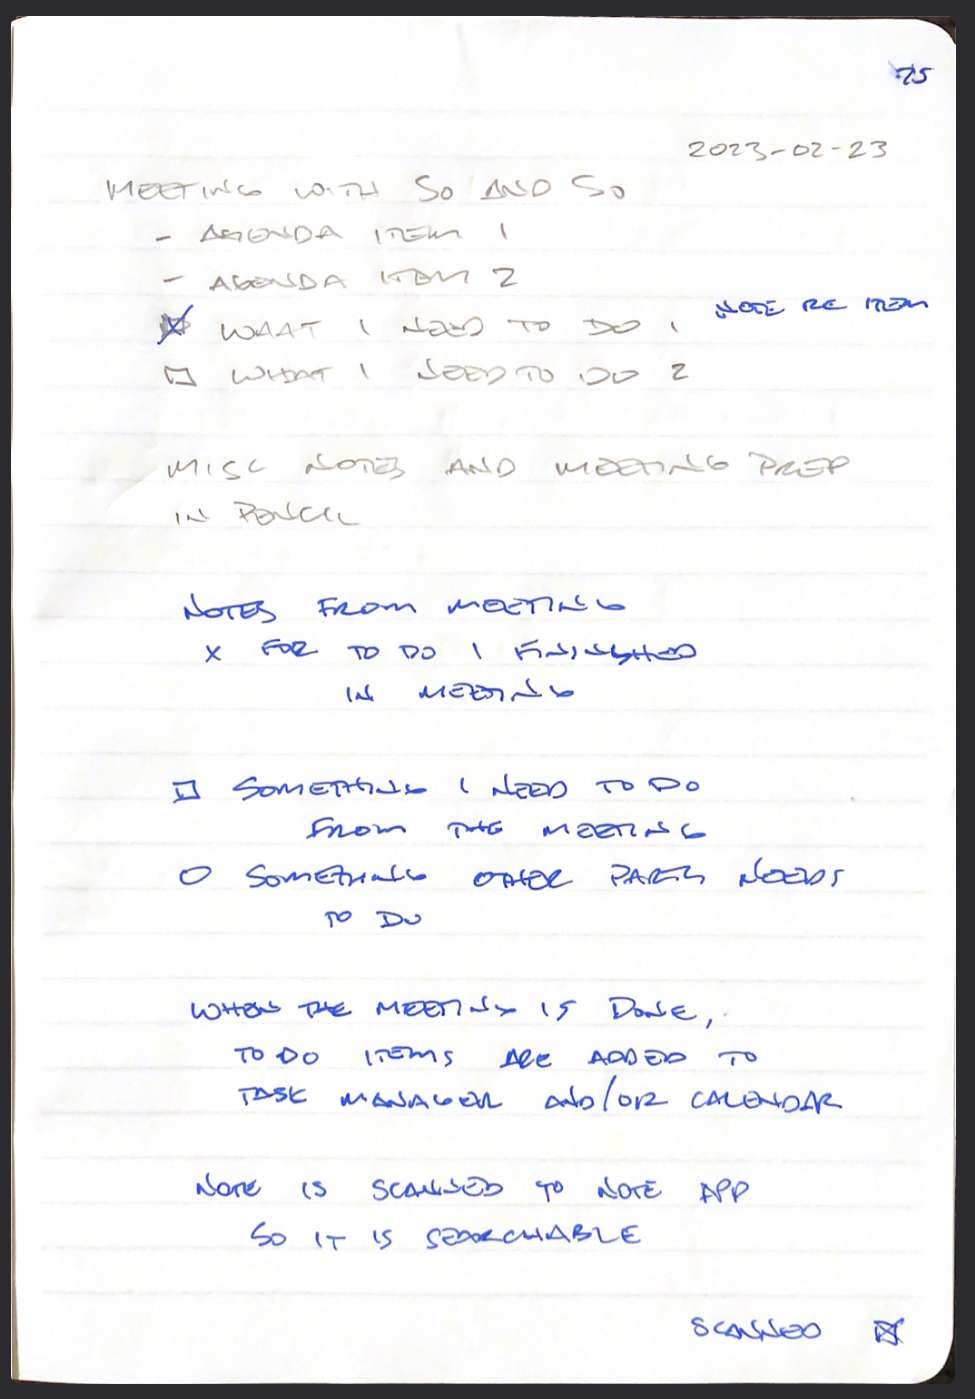 75
2023-02-23
MEETING WITH SO AND SO
- AGENDA ITEM 1
- AGENDA ITEM 2
NOTE RE ITEM
☒ WHAT I NEED TO DO 1
☐ WHAT I NEED TO DO 2
MISC NOTES AND MEETING PREP
IN PENCIL
NOTES FROM MEETING
x FOR TO DO I FINISHED
IN MEETING
☐ SOMETHING I NEED TO DO
FROM THE MEETING
○ SOMETHING OTHER PARTY NEEDS
TO DO
WHEN THE MEETING IS DONE,
TO DO ITEMS ARE ADDED TO
TASK MANAGER AND/OR CALENDAR
NOTE IS SCANNED TO NOTE APP
SO IT IS SEARCHABLE
SCANNED ☒